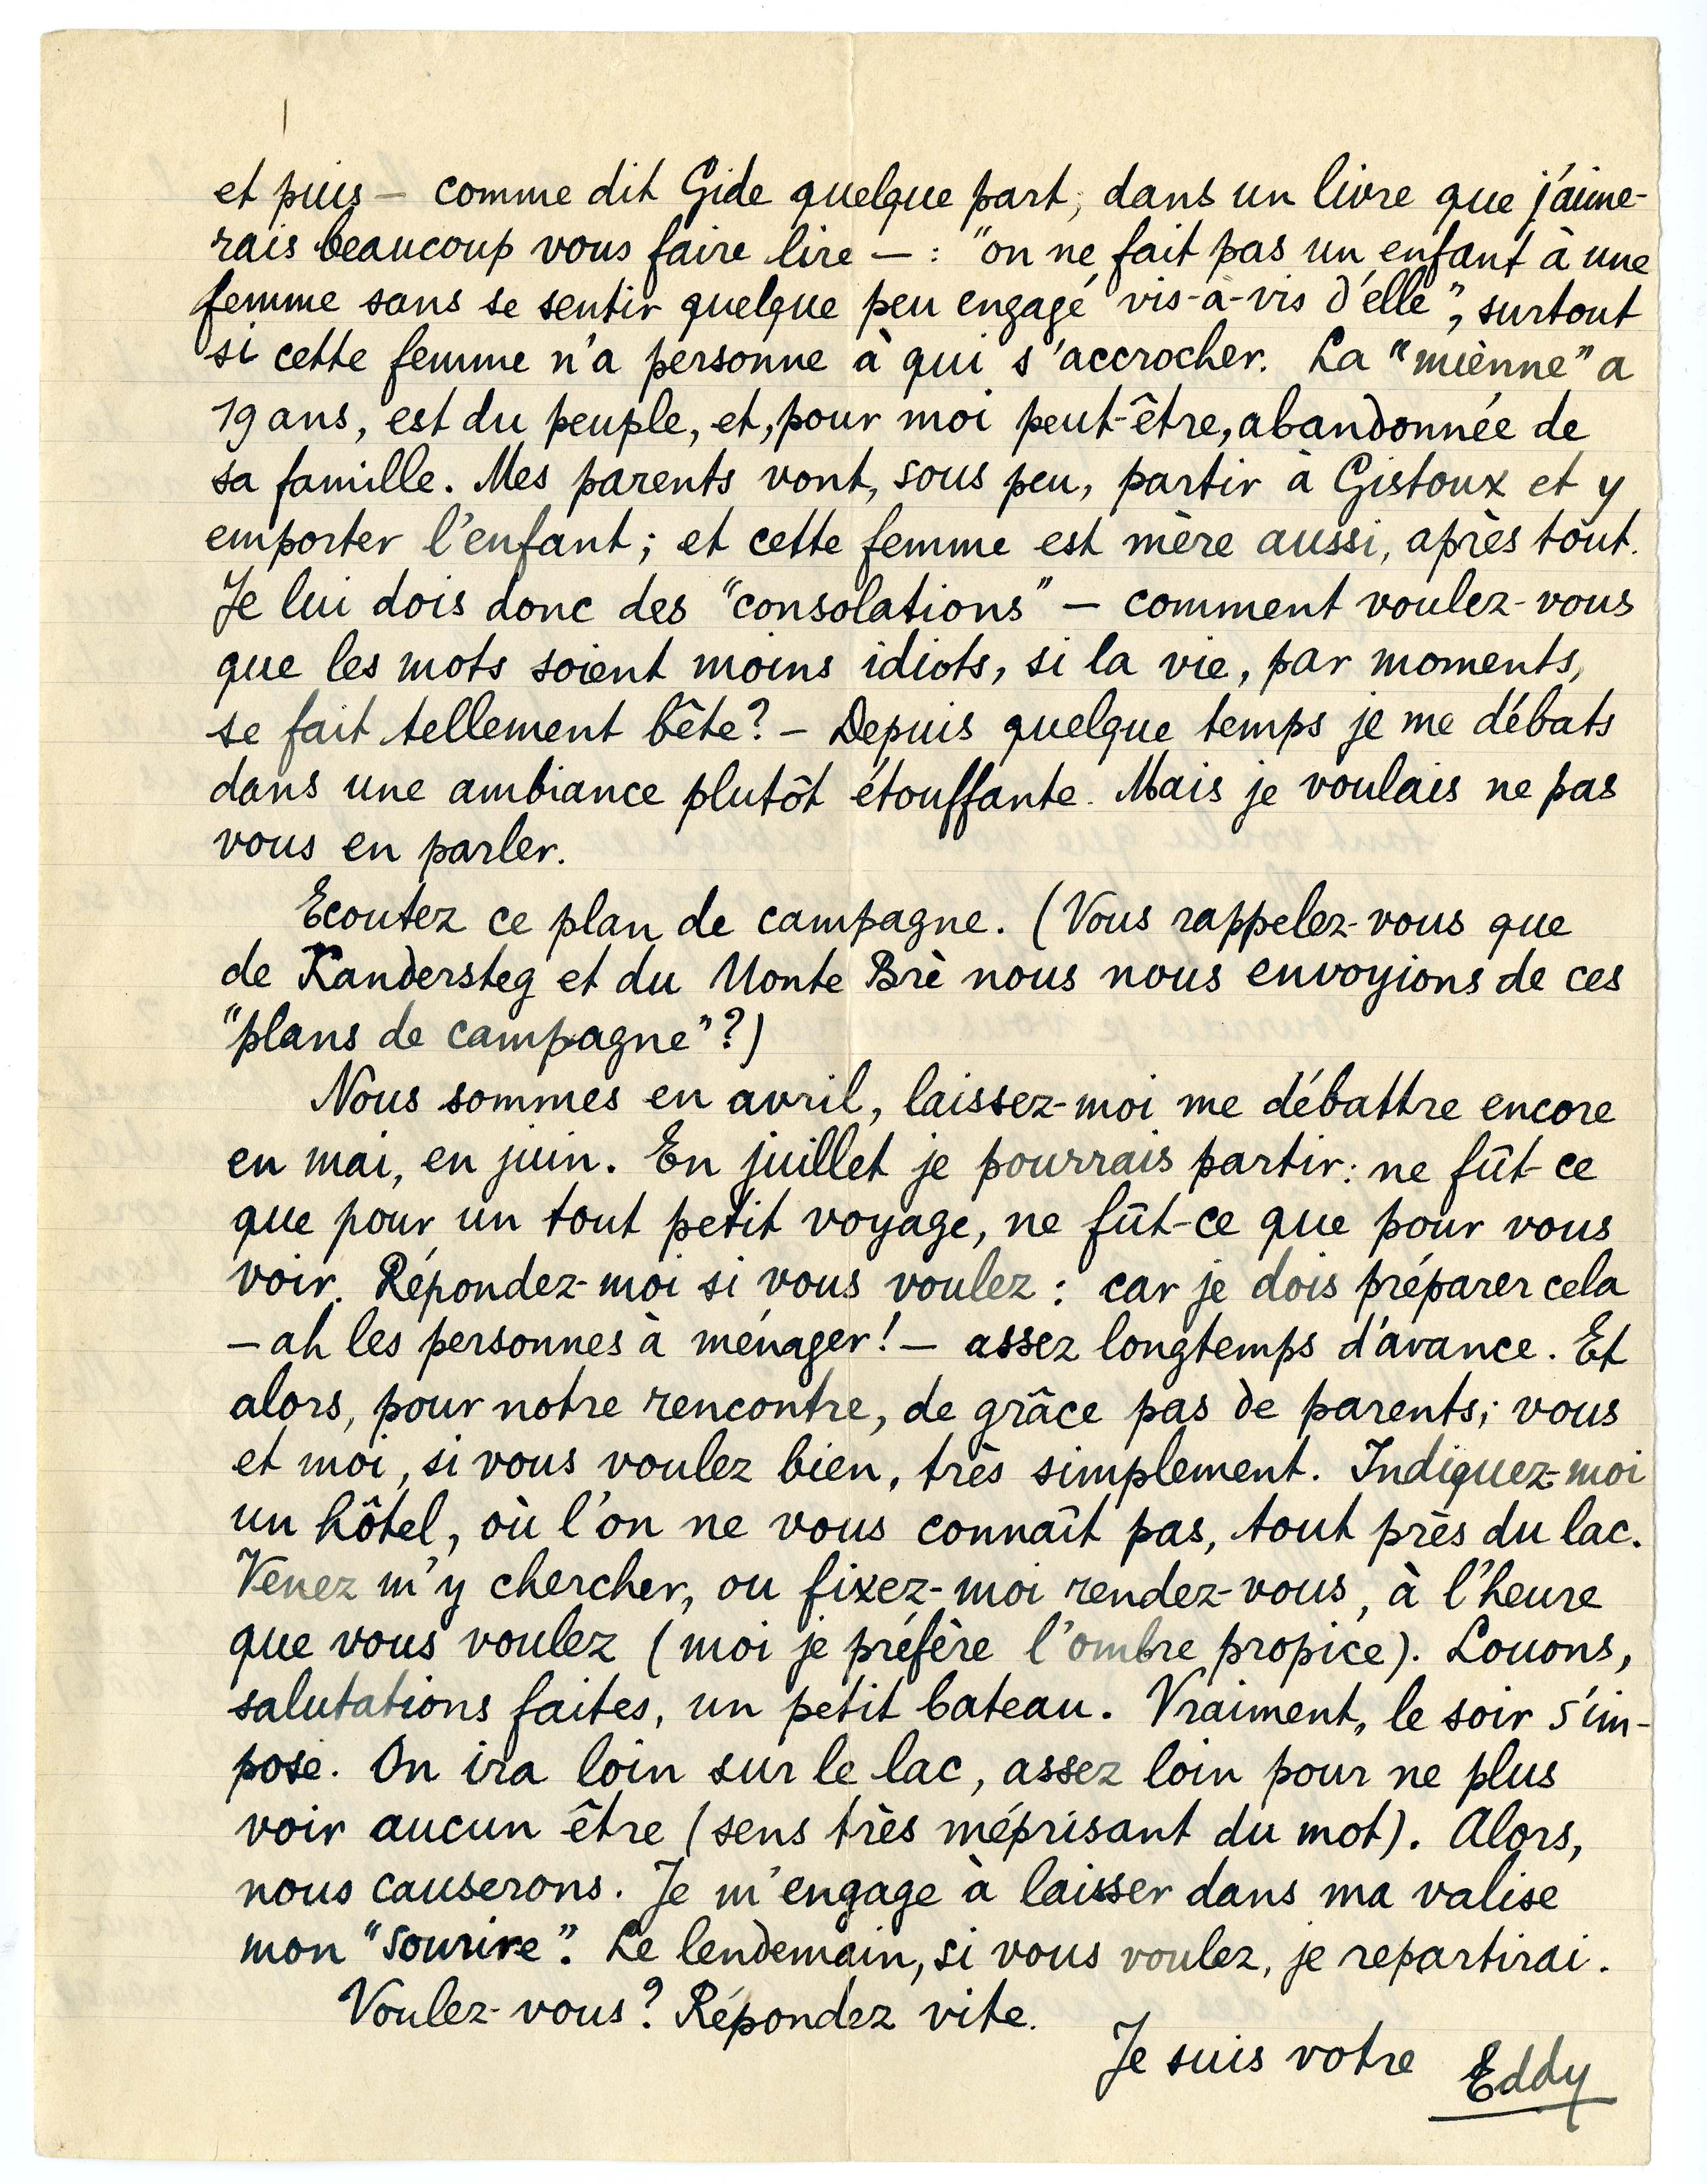 et puis — comme dit Gide quelque part, dans un livre que j'aime-
rais beaucoup vous faire lire — : "on ne fait pas un enfant à une
femme sans se sentir quelque peu engagé vis-à-vis d'elle", surtout
si cette femme n'a personne à qui s'accrocher. La "mienne" a
19 ans, est du peuple, et, pour moi peut-être, abandonnée de
sa famille. Mes parents vont, sous peu, partir à Gistoux et y
emporter l'enfant; et cette femme est mère aussi, après tout.
Je lui dois donc des "consolations" — comment voulez-vous
que les mots soient moins idiots, si la vie, par moments,
se fait tellement bête? — Depuis quelque temps je me débats
dans une ambiance plutôt étouffante. Mais je voulais ne pas
vous en parler.
Ecoutez ce plan de campagne. (Vous rappelez-vous que
de Kandersteg et du Monte Brè nous nous envoyions de ces
"plans de campagne"?)
Nous sommes en avril, laissez-moi me débattre encore
en mai, en juin. En juillet je pourrais partir: ne fût-ce
que pour un tout petit voyage, ne fût-ce que pour vous
voir. Répondez-moi si vous voulez : car je dois préparer cela
— ah les personnes à ménager! — assez longtemps d'avance. Et
alors, pour notre rencontre, de grâce pas de parents; vous
et moi, si vous voulez bien, très simplement. Indiquez-moi
un hôtel, où l'on ne vous connaît pas, tout près du lac.
Venez m'y chercher, ou fixez-moi rendez-vous, à l'heure
que vous voulez (moi je préfère l'ombre propice). Louons,
salutations faites, un petit bateau. Vraiment, le soir s'im-
pose. On ira loin sur le lac, assez loin pour ne plus
voir aucun être (sens très méprisant du mot). Alors,
nous causerons. Je m'engage à laisser dans ma valise
mon "sourire". Le lendemain, si vous voulez, je repartirai.
Voulez-vous? Répondez vite.
Je suis votre Eddy